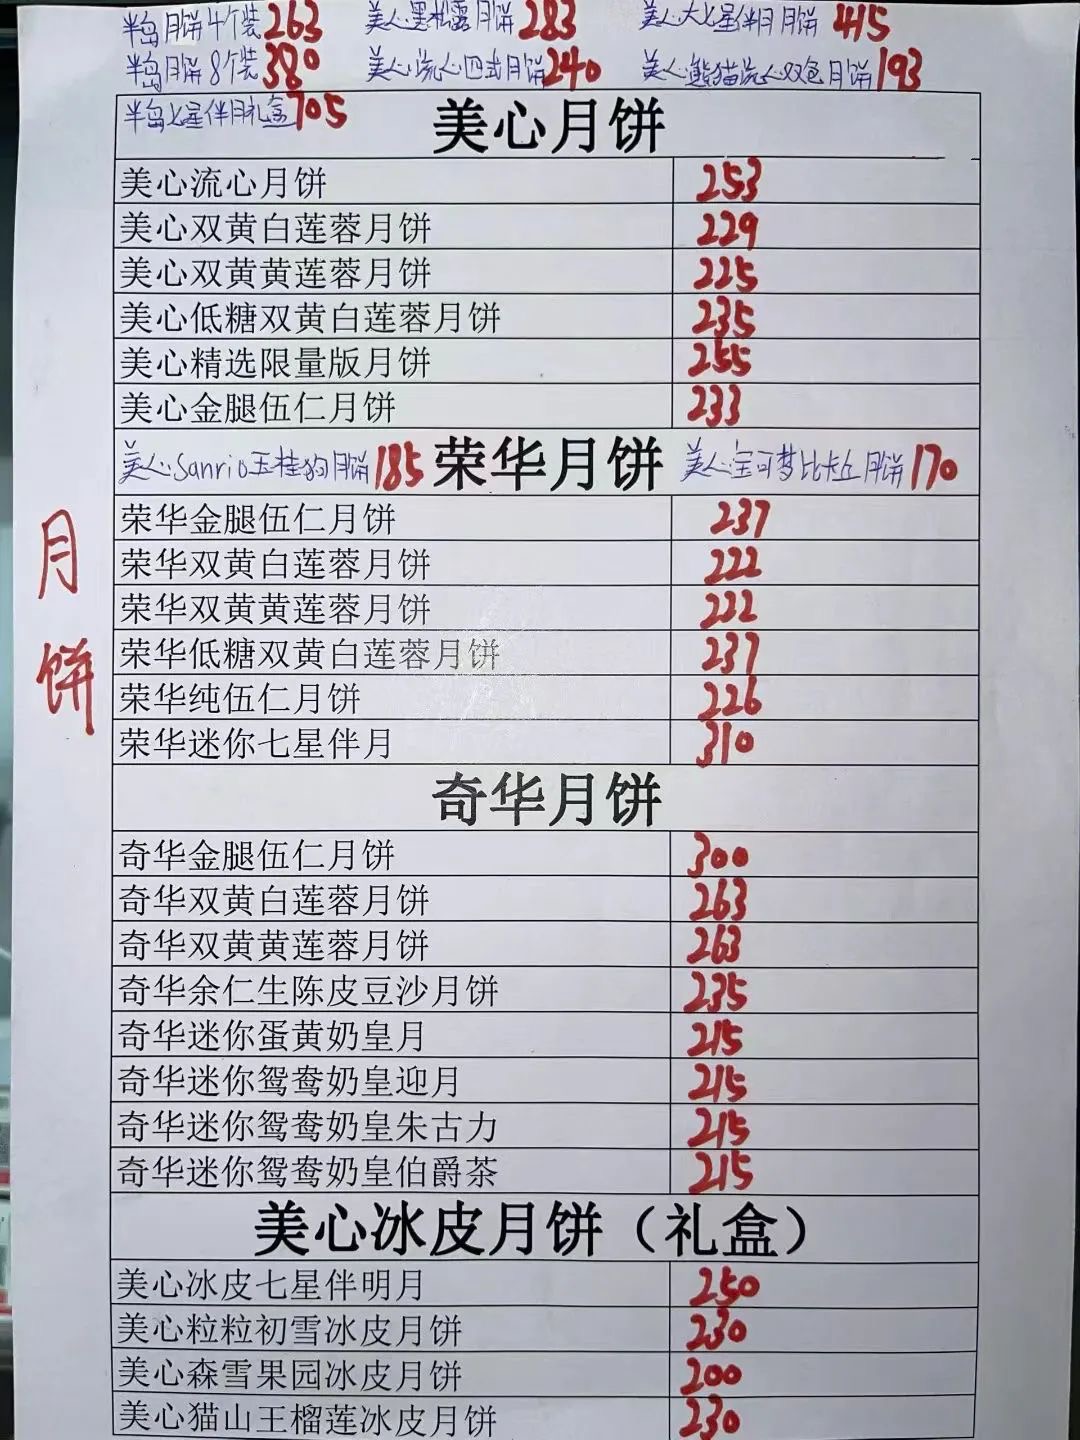 半岛月饼4个装263 美心黑松露月饼283 美心大七星伴月月饼415
半岛月饼8个装380 美心流心四式月饼240 美心熊猫流心双色月饼193
半岛七星伴月礼盒705
美心月饼
美心流心月饼 253
美心双黄白莲蓉月饼 229
美心双黄黄莲蓉月饼 225
美心低糖双黄白莲蓉月饼 235
美心精选限量版月饼 255
美心金腿伍仁月饼 233
美心Sanrio玉桂狗月饼185 荣华月饼 美心宝可梦比卡丘月饼170
荣华金腿伍仁月饼 237
荣华双黄白莲蓉月饼 222
荣华双黄黄莲蓉月饼 222
荣华低糖双黄白莲蓉月饼 237
荣华纯伍仁月饼 226
荣华迷你七星伴月 310
月饼
奇华月饼
奇华金腿伍仁月饼 300
奇华双黄白莲蓉月饼 263
奇华双黄黄莲蓉月饼 263
奇华余仁生陈皮豆沙月饼 235
奇华迷你蛋黄奶皇月 215
奇华迷你鸳鸯奶皇迎月 215
奇华迷你鸳鸯奶皇朱古力 215
奇华迷你鸳鸯奶皇伯爵茶 215
美心冰皮月饼（礼盒）
美心冰皮七星伴明月 250
美心粒粒初雪冰皮月饼 230
美心森雪果园冰皮月饼 200
美心猫山王榴莲冰皮月饼 230